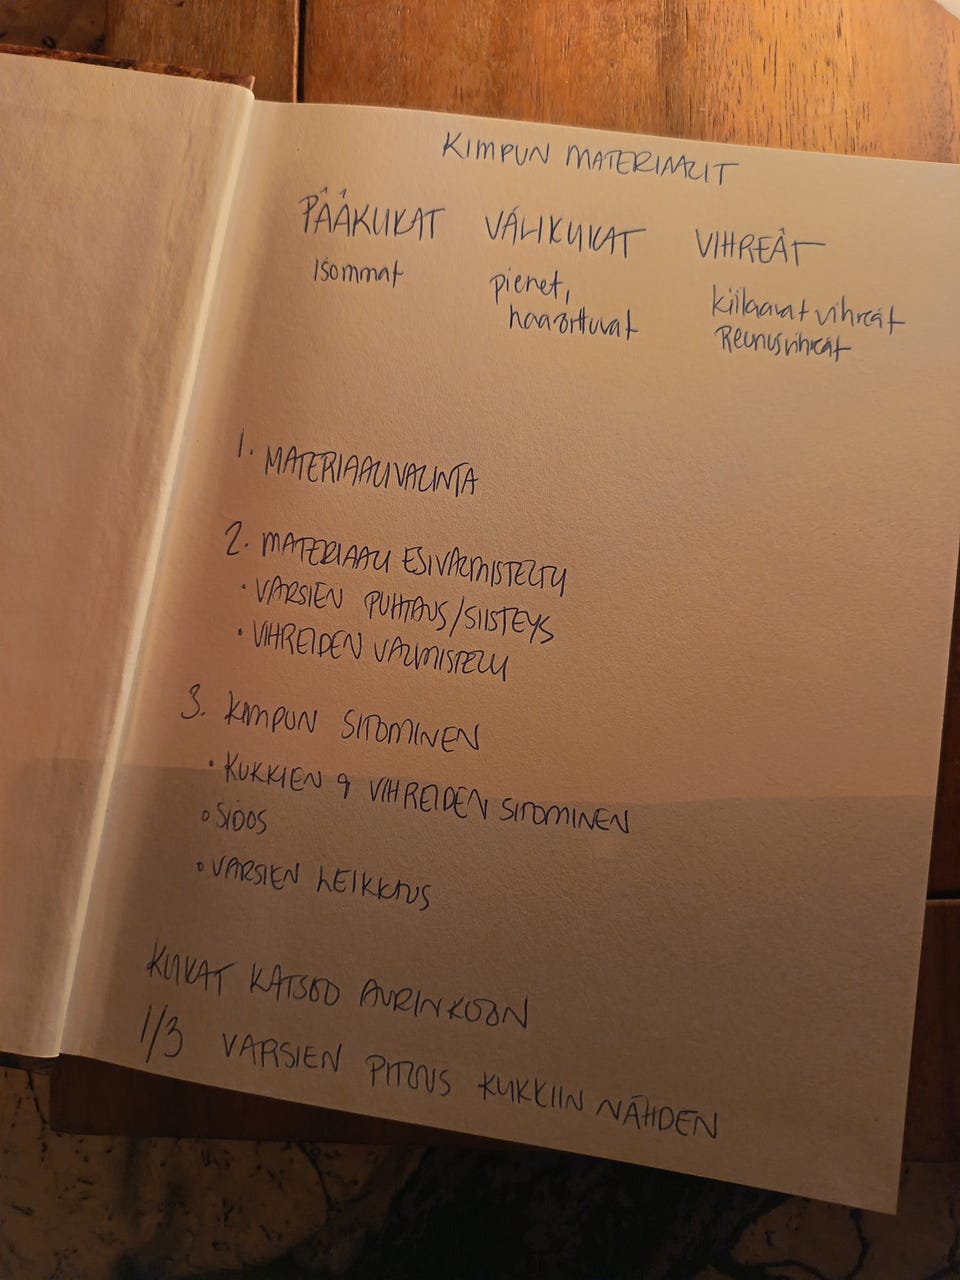 KIMPUN MATERIAALIT
PÄÄKUKAT VÄLIKUKAT VIHREÄT
isommat
pienet,
haarottuvat
kiilaavat vihreät
Reunusvihreät
1. MATERIAALIVALINTA
2. MATERIAALI ESIVALMISTELU
• VARSIEN PUHTAUS/SIISTEYS
• VIHREIDEN VALMISTELU
3. KIMPUN SITOMINEN
• KUKKIEN & VIHREIDEN SITOMINEN
• SIDOS
• VARSIEN LEIKKAUS
KUKAT KATSOO AURINKOON
1/3 VARSIEN PITUUS KUKKIIN NÄHDEN